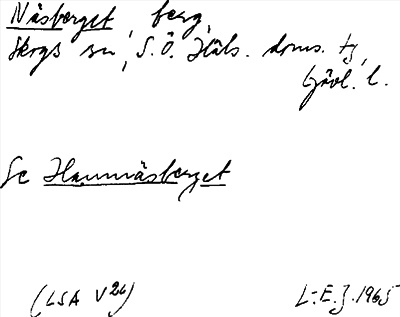 Näsberget, berg,
Skogs sn, S.Ö. Häls. doms. tg,
Gävl. l.
Se Hamnäsberget
(LSA V26) L-E. J. 1965